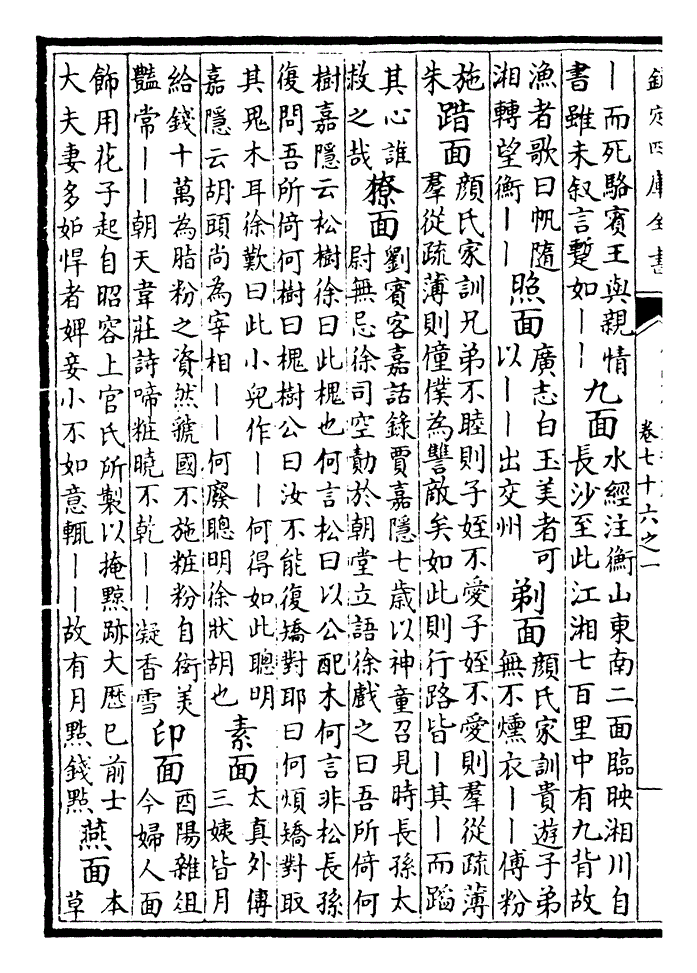 欽定四庫全書
卷七十六之一
｜而死駱賓王與親情
書雖未叙言蹔如｜｜
九面
水經注衡山東南二面臨映湘川自
長沙至此江湘七百里中有九背故
漁者歌曰帆隨
湘轉望衡｜｜
照面
廣志白玉美者可
以｜｜出交州
剃面
顔氏家訓貴遊子弟
無不燻衣｜｜傅粉
施
朱
踖面
顔氏家訓兄弟不睦則子姪不愛子姪不愛則羣從疏薄
羣從疏薄則僮僕為讐敵矣如此則行路皆｜其｜而蹈
其心誰
救之哉
獠面
劉賓客嘉話錄賈嘉隱七歳以神童召見時長孫太
尉無忌徐司空勣於朝堂立語徐戲之曰吾所倚何
樹嘉隱云松樹徐曰此槐也何言松曰以公配木何言非松長孫
復問吾所倚何樹曰槐樹公曰汝不能復矯對耶曰何煩矯對取
其鬼木耳徐歎曰此小兒作｜｜何得如此聰明
嘉隱云胡頭尚為宰相｜｜何廢聰明徐狀胡也
素面
太真外傳
三姨皆月
給錢十萬為脂粉之資然虢國不施粧粉自衒美
豔常｜｜朝天韋莊詩啼粧曉不乾｜｜凝香雪
印面
酉陽雜俎
今婦人面
飾用花子起自昭容上官氏所製以掩黥跡大歴已前士
大夫妻多妬悍者婢妾小不如意輒｜｜故有月點錢點
燕面
本
草